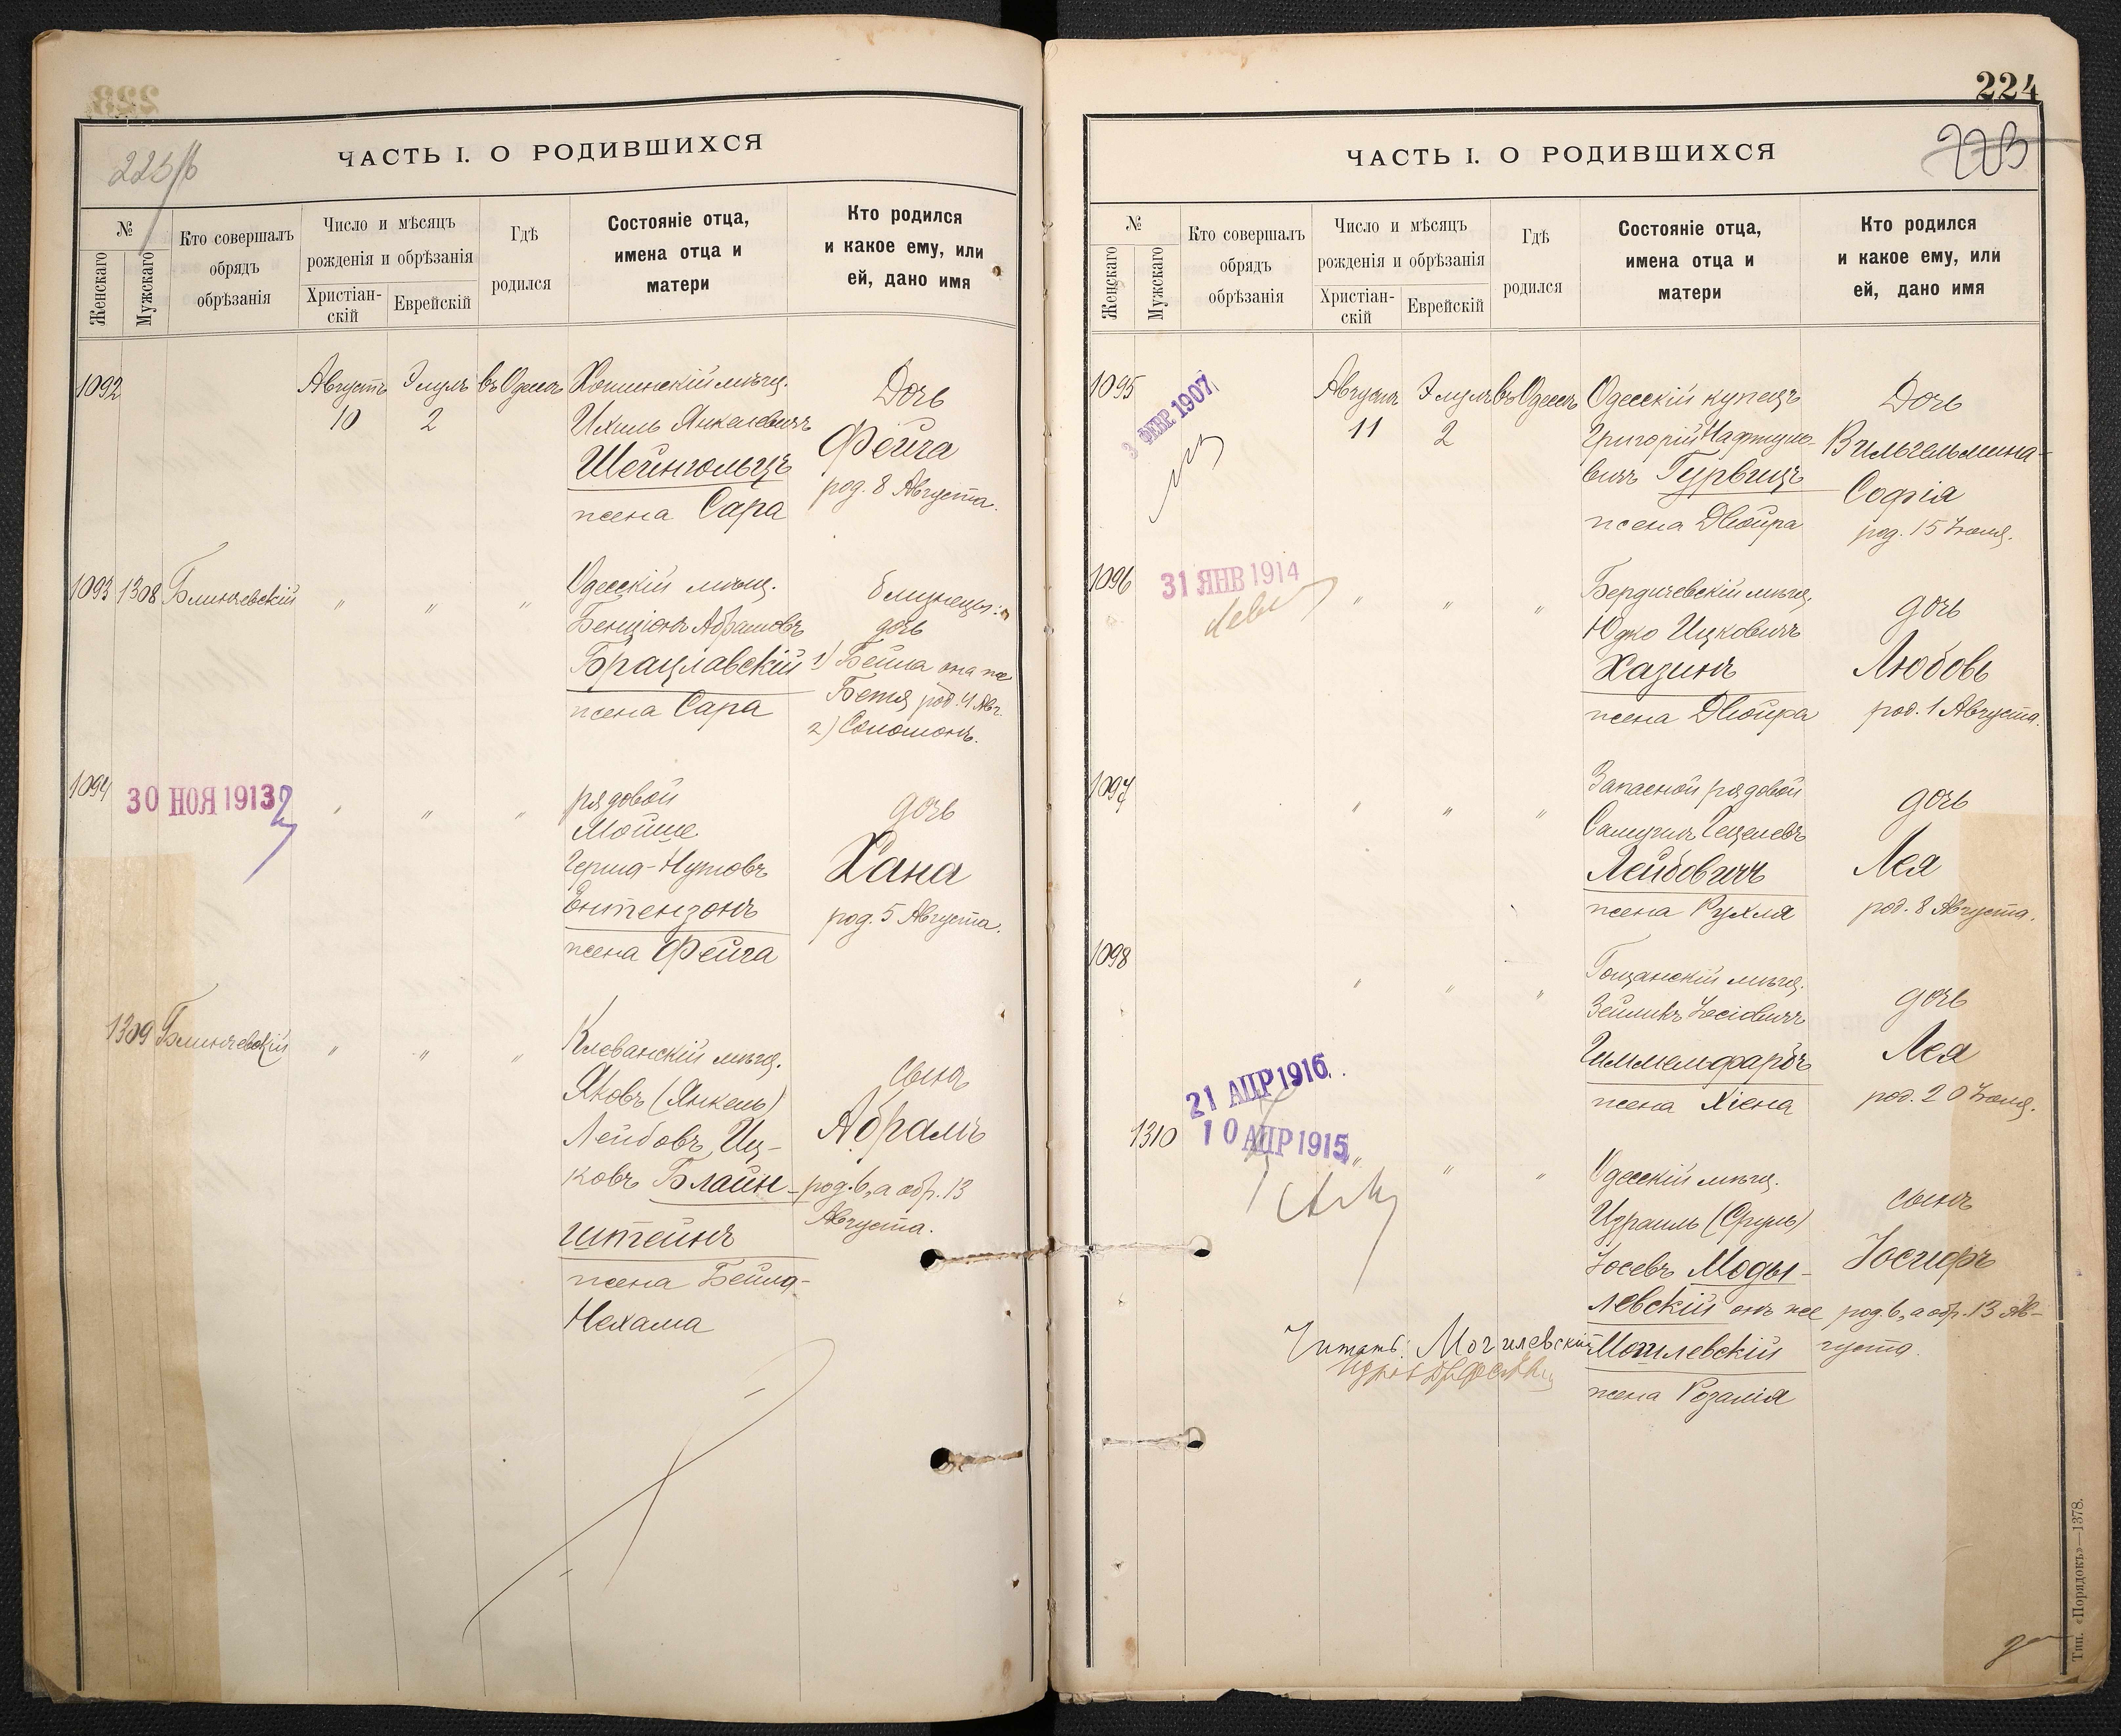 223/б
ЧАСТЬ I. О РОДИВШИХСЯ
№
Женскаго
Мужскаго
Кто совершалъ
обрядъ
обрѣзанія
Число и мѣсяцъ
рожденія и обрѣзанія
Христіан-
скій
Еврейскій
Гдѣ
родился
Состояніе отца,
имена отца и
матери
Кто родился
и какое ему, или
ей, дано имя
1092
Августъ
10
Элулъ
2
въ Одессѣ
Хотинскій мѣщ.
Ихиль Янкелевичъ
Шейнгольцъ
жена Сара
Дочь
Фейга
род. 8 Августа.
1093 1308 Блинчевскій
" " "
Одесскій мѣщ.
Бенціонъ Абрамовъ
Брацлавскій
жена Сара
близнецы:
дочь
1) Бейла она же
Бетя род. 4 Авг.
2) Соломонъ.
1094
30 НОЯ 1913
" " "
рядовой
Мойше
Герша-Нутовъ
Энтензонъ
жена Фейга
дочь
Хана
род. 5 Августа.
1309 Блинчевскій
" " "
Клеванскій мѣщ.
Яковъ (Янкель)
Лейбовъ, Иц-
ковъ Блайн-
штейнъ
жена Бейла-
Нехама
сынъ
Абрамъ
род. 6, а обр. 13
Августа.
224
223
ЧАСТЬ I. О РОДИВШИХСЯ
№
Женскаго
Мужскаго
Кто совершалъ
обрядъ
обрѣзанія
Число и мѣсяцъ
рожденія и обрѣзанія
Христіан-
скій
Еврейскій
Гдѣ
родился
Состояніе отца,
имена отца и
матери
Кто родился
и какое ему, или
ей, дано имя
1095
3 ФЕВР 1907
Августъ
11
Элулъ
2
въ Одессѣ
Одесскій купецъ
Григорій Нафтуло-
вичъ Гурвицъ
жена Двойра
Дочь
Вильгельмина-
Софія
род. 15 Іюля.
1096
31 ЯНВ 1914
" " "
Бердичевскій мѣщ.
Юдко Ицковичъ
Хазинъ
жена Двойра
дочь
Любовь
род. 1 Августа.
1097
" " "
Запасной рядовой
Самуилъ Гецелевъ
Лейбовичъ
жена Рухля
дочь
Лея
род. 8 Августа.
1098
" " "
Гощанскій мѣщ.
Зейликъ Іосіовичъ
Гиммельфарбъ
жена Хіена
дочь
Лея
род. 20 Іюля.
21 АПР 1916
1310
10 АПР 1915
" " "
Одесскій мѣщ.
Израиль (Сруль)
Іосевъ Моды-
левскій онъ же
Могилевскій
жена Розалія
сынъ
Іосифъ
род. 6, а обр. 13 Ав-
густа.
Читать: Могилевскій
Тип. «Порядокъ»—1378.